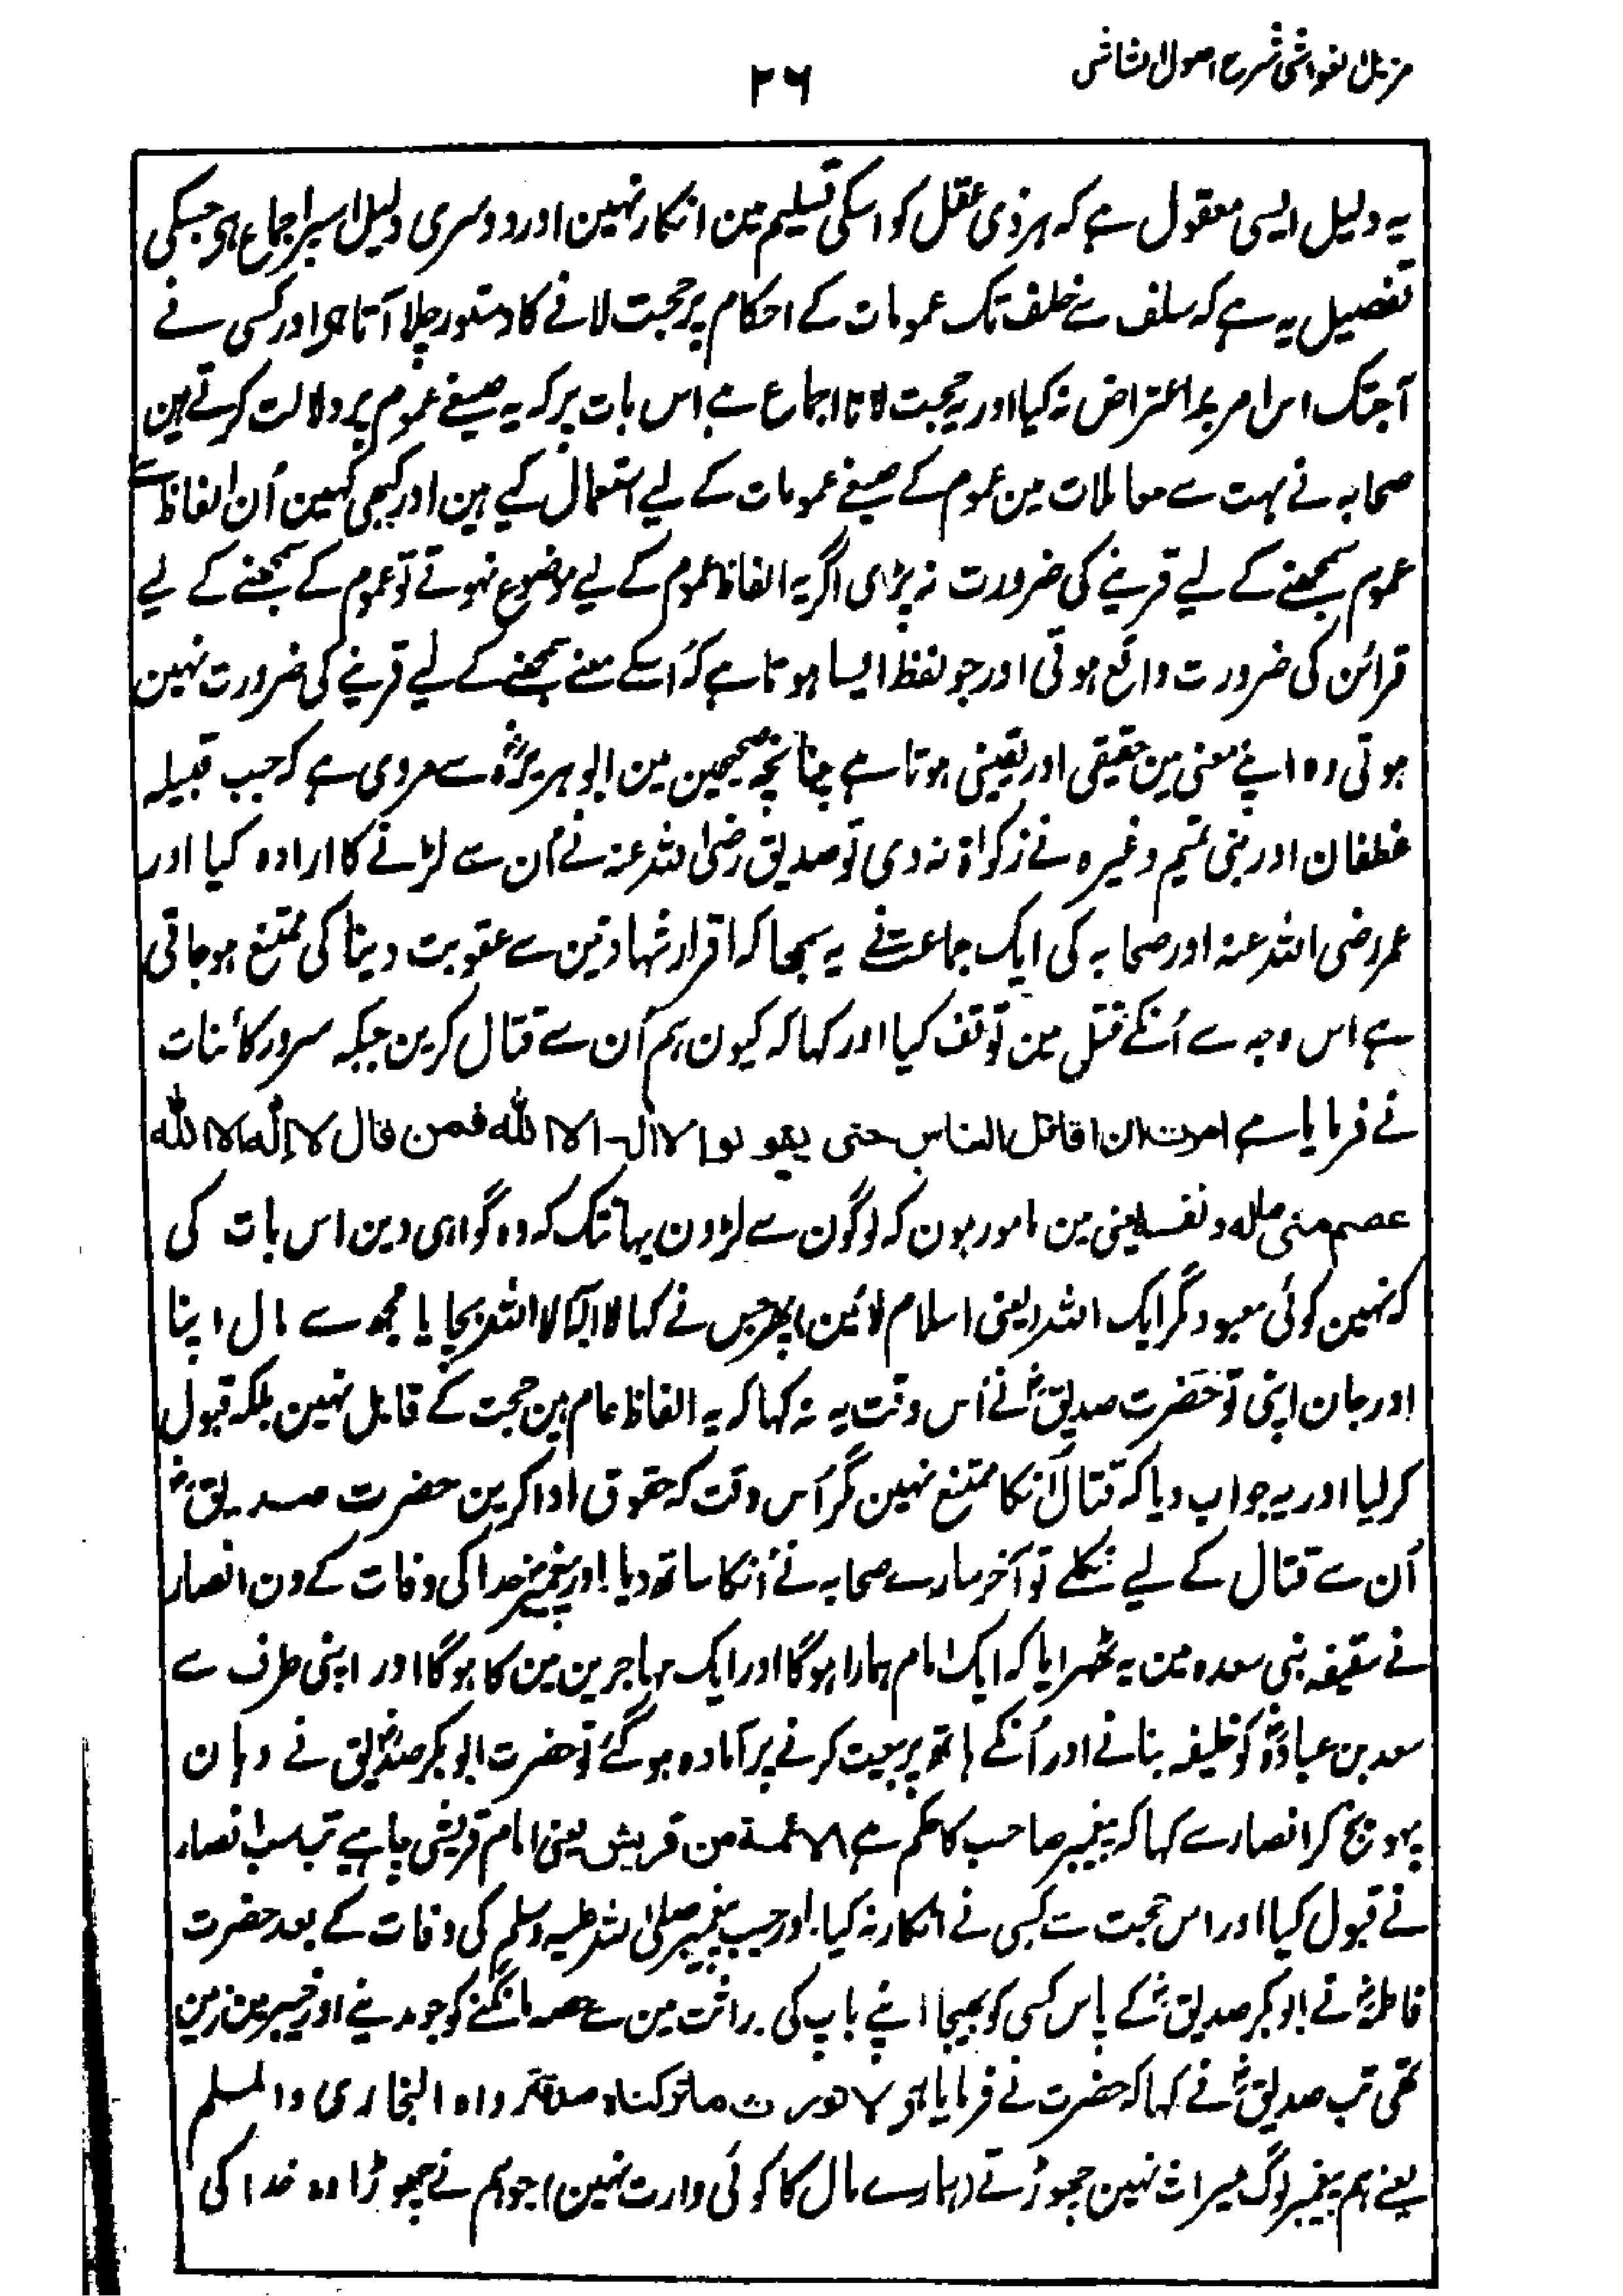 مزیل الغواشی شرح اصول الشاشی
۲۶
یہ دلیل ایسی معقول ہے کہ ہر ذی عقل کو اسکی تسلیم مین انکار نہین اور دوسری دلیل اسپر اجماع ہی جسکی
تفصیل یہ ہے کہ سلف سے خلف تک عمومات کے احکام پر حجت لانے کا دستور چلا آتا ہی اور کسی نے
آجتک اس امر پر اعتراض نہ کیا اور یہ حجت لانا اجماع ہے اس بات پر کہ یہ صیغے عموم پر دلالت کرتے ہین
صحابہ نے بہت سے معاملات مین عموم کے صیغے عمومات کے لیے استعمال کیے ہین اور کبھی کہین اُن الفاظ سے
عموم سمجھنے کے لیے قرینے کی ضرورت نہ پڑی اگر یہ الفاظ عموم کے لیے موضوع نہوتے تو عموم کے سمجھنے کے لیے
قرائن کی ضرورت واقع ہوتی اور جو لفظ ایسا ہوتا ہے کہ اُسکے معنے سمجھنے کے لیے قرینے کی ضرورت نہین
ہوتی وہ اپنے معنی مین حقیقی اور یقینی ہوتا ہے چنانچہ صحیحین مین ابو ہریرہؓ سے مروی ہے کہ جب قبیلہ
غطفان اور بنی تمیم وغیرہ نے زکواۃ نہ دی تو صدیق رضی اللہ عنہ نے اُن سے لڑنے کا ارادہ کیا اور
عمر رضی اللہ عنہ اور صحابہ کی ایک جماعت نے یہ سمجھا کہ اقرار شہادتین سے عقوبت دینا کی ممتنع ہو جاتی
ہے اس وجہ سے اُنکے قتل مین توقف کیا اور کہا کہ کیون ہم اُن سے قتال کرین جبکہ سرور کائنات
نے فرمایا ہے امرت ان اقاتل الناس حتی یقولوا لا الہ الا اللہ فمن قال لا إلہ الا اللہ
عصم منی مالہ و نفسہ یعنی مین مامور ہون کہ لوگون سے لڑون یہانتک کہ وہ گواہی دین اس بات کی
کہ نہین کوئی معبود مگر ایک اللہ (یعنی اسلام لائین) پھر جس نے کہا لا الہ الا اللہ بچایا مجھ سے مال اپنا
اور جان اپنی تو حضرت صدیقؓ نے اُس وقت یہ نہ کہا کہ یہ الفاظ عام ہین حجت کے قابل نہین بلکہ قبول
کر لیا اور یہ جواب دیا کہ قتال اُنکا ممتنع نہین مگر اُس وقت کہ حقوق ادا کرین حضرت صدیقؓ
اُن سے قتال کے لیے نکلے تو آخر سارے صحابہ نے اُنکا ساتھ دیا اور پیغمبر خدا کی وفات کے دن انصار
نے سقیفہ بنی سعدہ مین یہ ٹھہرایا کہ ایک امام ہمارا ہوگا اور ایک مہاجرین مین کا ہوگا اور اپنی طرف سے
سعد بن عبادہؓ کو خلیفہ بنانے اور اُنکے ہاتھ پر بیعت کرنے پر آمادہ ہو گئے تو حضرت ابو بکر صدیقؓ نے وہان
پہونچ کر انصار سے کہا کہ پیغمبر صاحب کا حکم ہے الائمۃ من قریش یعنی امام قریشی چاہیے تب سب انصار
نے قبول کیا اور اس حجت سے کسی نے انکار نہ کیا۔ اور جب پیغمبر صلی اللہ علیہ وسلم کی وفات کے بعد حضرت
فاطمہؓ نے ابو بکر صدیقؓ کے پاس کسی کو بھیجا اپنے باپ کی وراثت مین سے حصہ مانگنے کو جو مدینے اور خیبر مین زمین
تھی تب صدیقؓ نے کہا کہ حضرت نے فرمایا ہی لا نورث ما ترکناہ صدقۃ رواہ البخاری والمسلم
یعنے ہم پیغمبر لوگ میراث نہین چھوڑتے (ہمارے مال کا کوئی وارث نہین) جو ہم نے چھوڑا وہ خدا کی